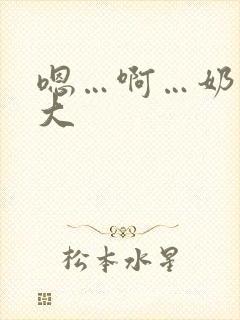 嗯…啊…奶
大
松本水星